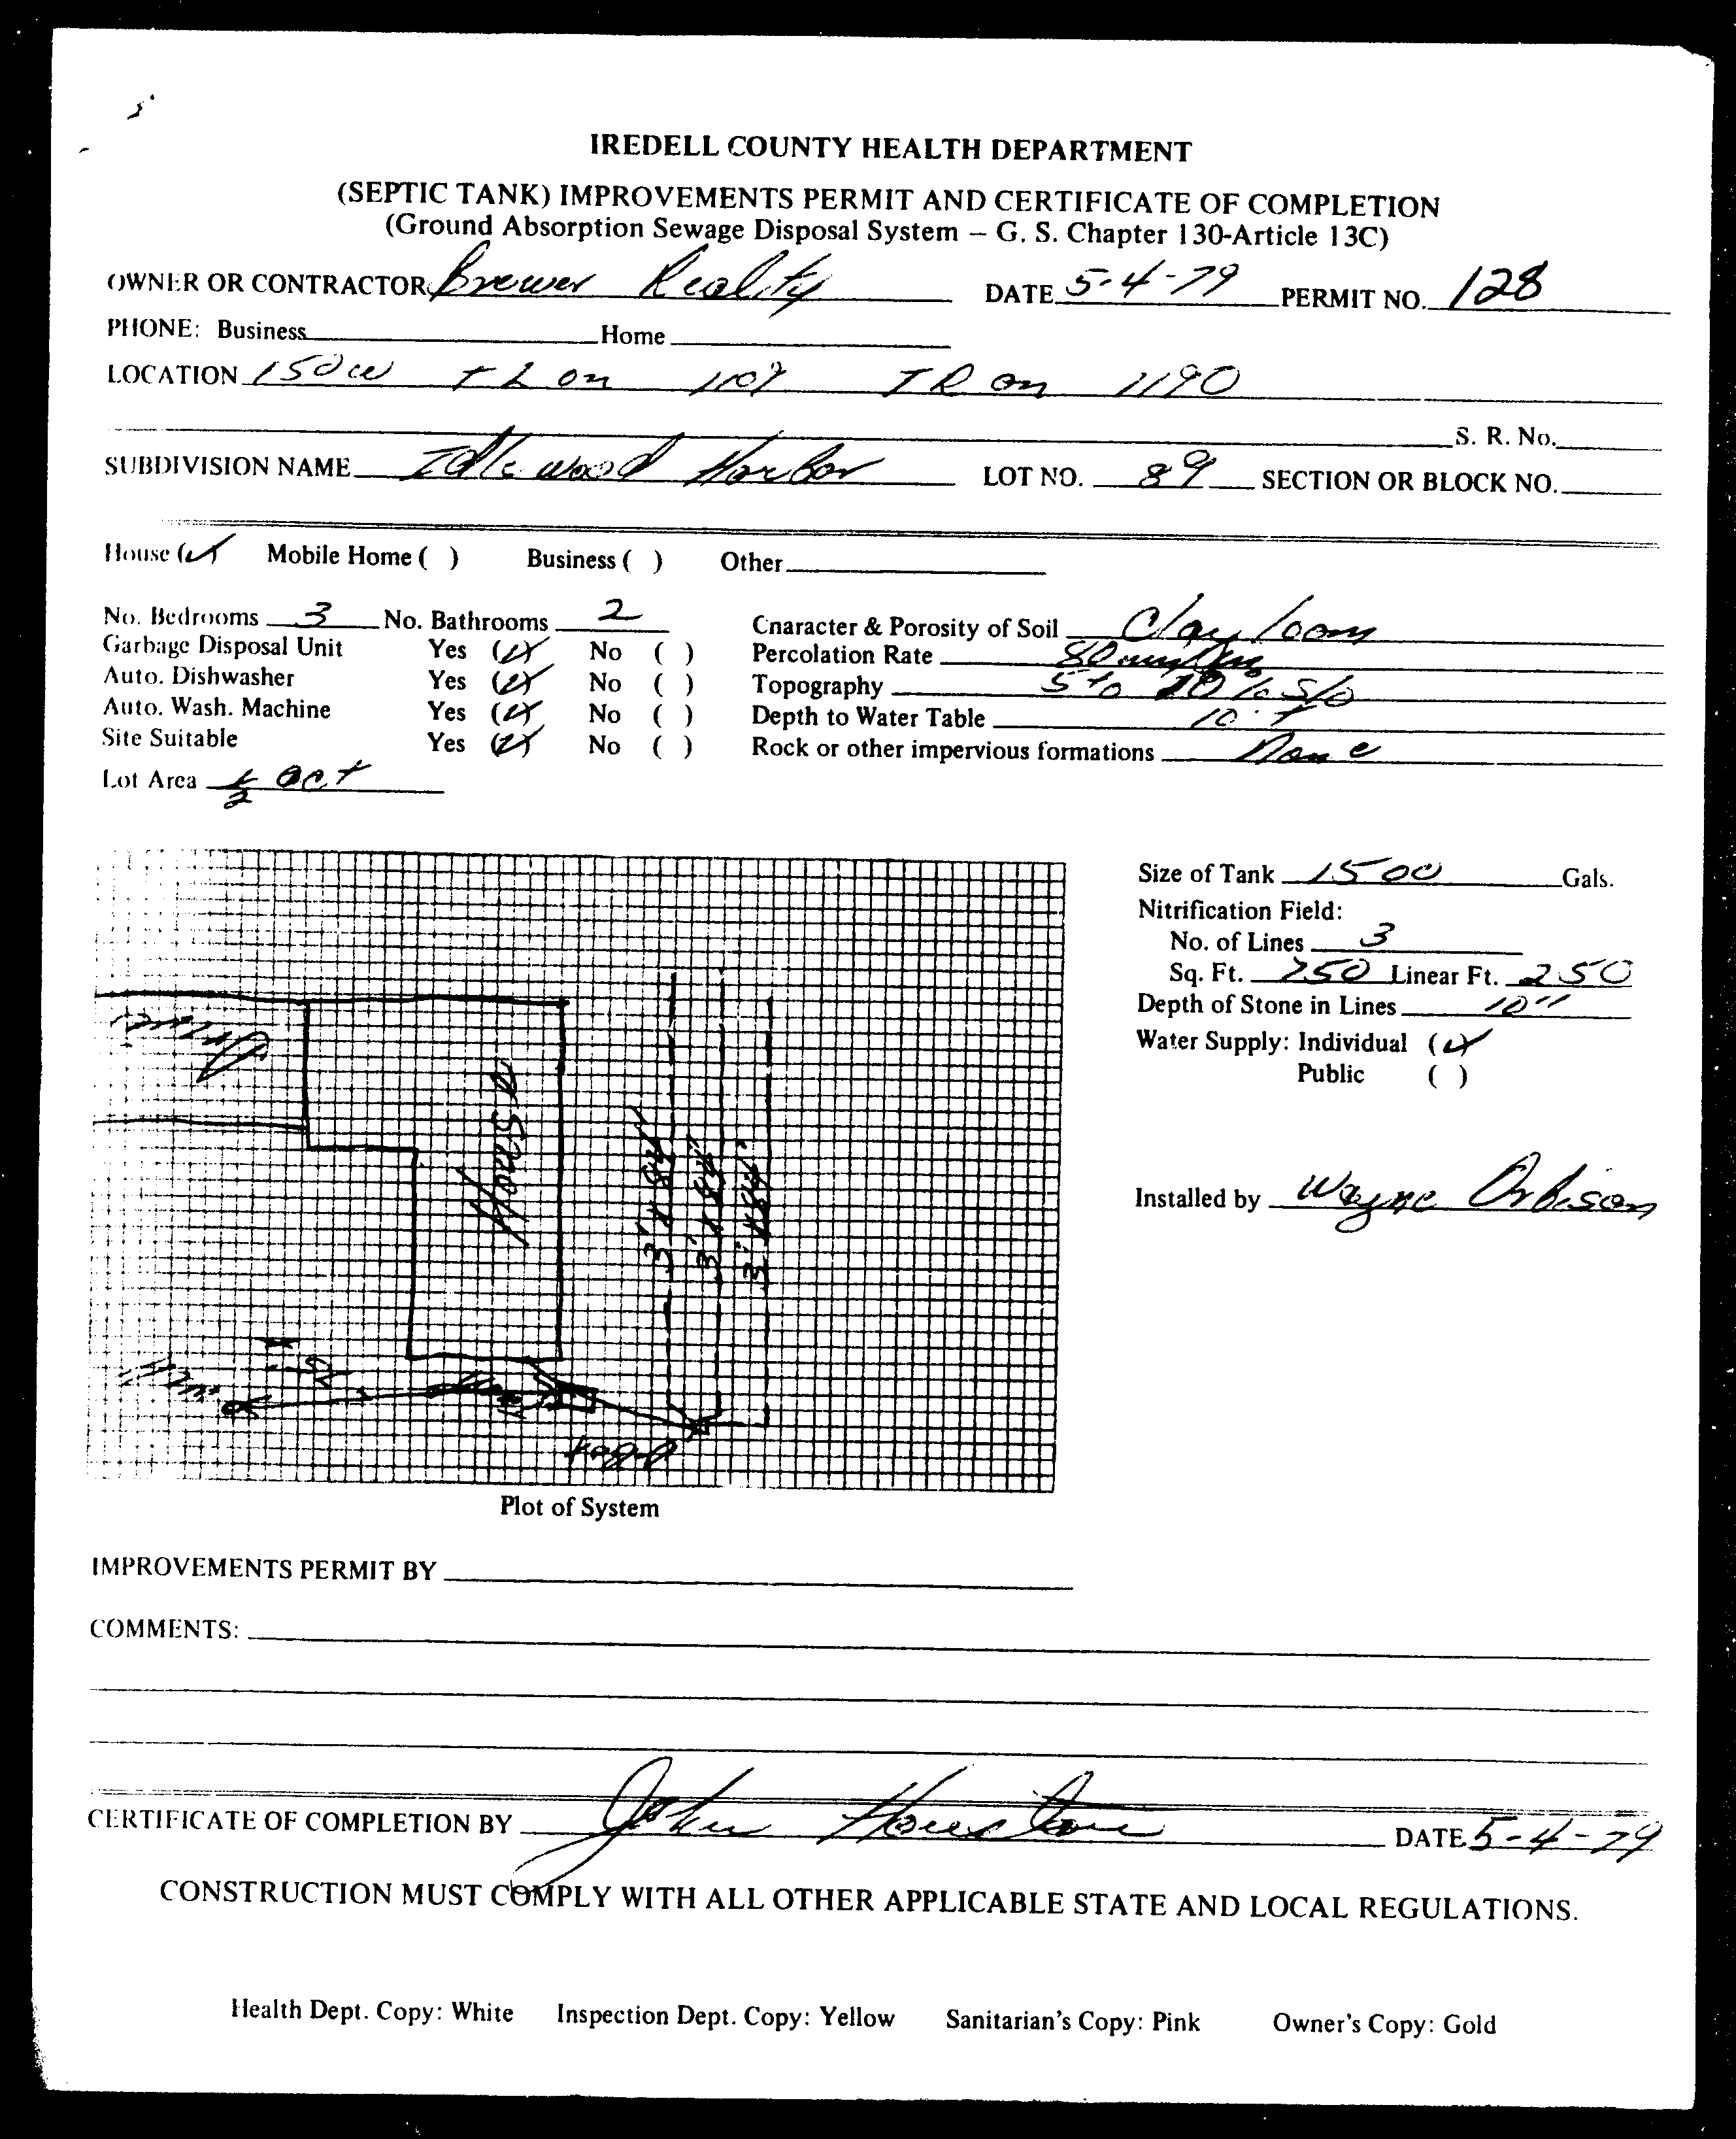 IREDELL COUNTY HEALTH DEPARTMENT
(SEPTIC TANK) IMPROVEMENTS PERMIT AND CERTIFICATE OF COMPLETION
(Ground Absorption Sewage Disposal System – G. S. Chapter 130-Article 13C)
OWNER OR CONTRACTOR Brewer Realty DATE 5-4-79 PERMIT NO. 128
PHONE: Business Home
LOCATION 150W TL on TR on 1190
S. R. No.
SUBDIVISION NAME Idlewood Harbor LOT NO. 89 SECTION OR BLOCK NO.
House (✓) Mobile Home ( ) Business ( ) Other
No. Bedrooms 3 No. Bathrooms 2 Character & Porosity of Soil Clay loam
Garbage Disposal Unit Yes (✓) No ( ) Percolation Rate 80
Auto. Dishwasher Yes (✓) No ( ) Topography 5 to
Auto. Wash. Machine Yes (✓) No ( ) Depth to Water Table 10'+
Site Suitable Yes (✓) No ( ) Rock or other impervious formations None
Lot Area ½ ac +
Size of Tank 1500 Gals.
Nitrification Field:
No. of Lines 3
Sq. Ft. 750 Linear Ft. 250
Depth of Stone in Lines 10"
Water Supply: Individual (✓)
Public ( )
Drive
House
3' x 84'
3' x 84'
3' x 84'
Installed by Wayne Orbison
Plot of System
IMPROVEMENTS PERMIT BY
COMMENTS:
CERTIFICATE OF COMPLETION BY John Houston DATE 5-4-79
CONSTRUCTION MUST COMPLY WITH ALL OTHER APPLICABLE STATE AND LOCAL REGULATIONS.
Health Dept. Copy: White Inspection Dept. Copy: Yellow Sanitarian's Copy: Pink Owner's Copy: Gold